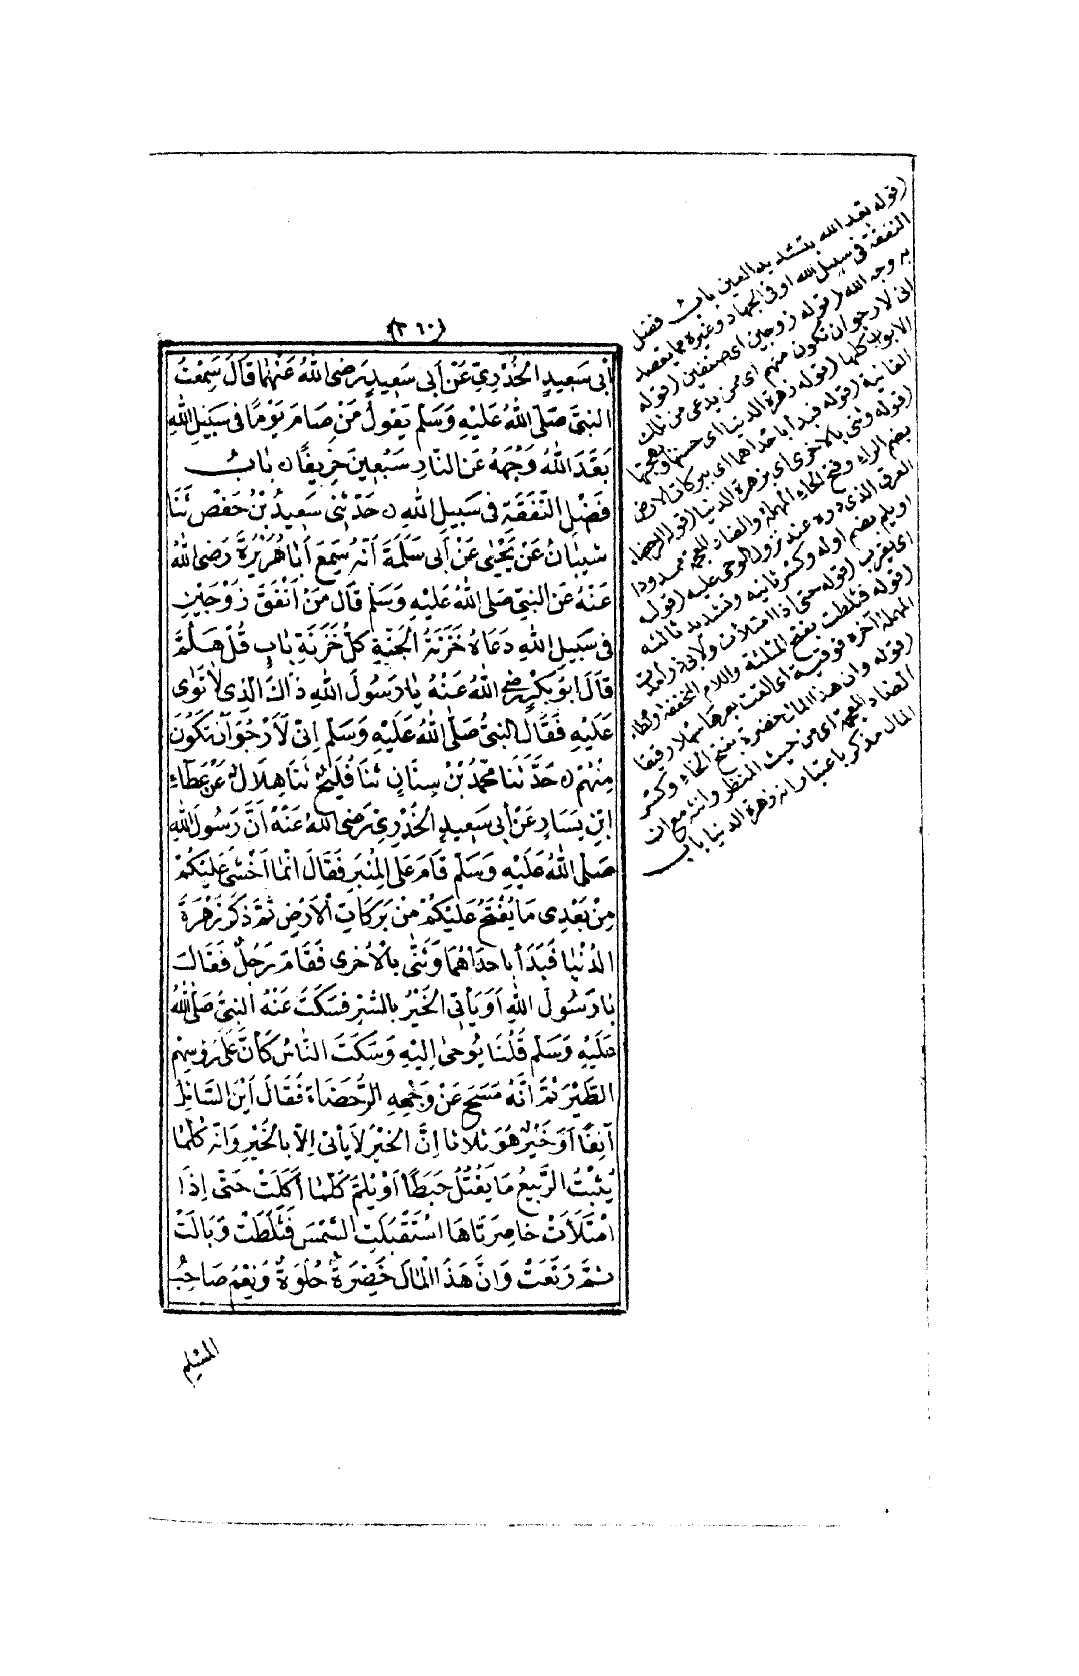 (٣٦٠)
أَبِي سَعِيدٍ الخُدْرِيِّ عَنْ أَبِي سَعِيدٍ رَضِيَ اللهُ عَنْهُمَا قَالَ سَمِعْتُ
النبيَّ صَلَّى اللهُ عَلَيْهِ وَسَلَّمَ يَقُولُ مَنْ صَامَ يَوْمًا في سَبِيلِ اللهِ
بَعَّدَ اللهُ وَجْهَهُ عَنِ النَّارِ سَبْعِينَ خَرِيفًا ۝ بَابُ
فَضْلِ النَّفَقَةِ فِي سَبِيلِ اللهِ ۝ حَدَّثَنِي سَعِيدُ بْنُ حَفْصٍ ثَنَا
شَيْبَانُ عَنْ يَحْيَى عَنْ أَبِي سَلَمَةَ أَنَّهُ سَمِعَ أَبَا هُرَيْرَةَ رَضِيَ اللهُ
عَنْهُ عَنِ النبيِّ صَلَّى اللهُ عَلَيْهِ وَسَلَّمَ قَالَ مَنْ أَنْفَقَ زَوْجَيْنِ
فِي سَبِيلِ اللهِ دَعَاهُ خَزَنَةُ الجَنَّةِ كُلُّ خَزَنَةِ بَابٍ أَيْ فُلُ هَلُمَّ
قَالَ أَبُو بَكْرٍ رَضِيَ اللهُ عَنْهُ يَا رَسُولَ اللهِ ذَاكَ الَّذِي لَا تَوَى
عَلَيْهِ فَقَالَ النبيُّ صَلَّى اللهُ عَلَيْهِ وَسَلَّمَ إِنِّي لَأَرْجُو أَنْ تَكُونَ
مِنْهُمْ ۝ حَدَّثَنَا مُحَمَّدُ بْنُ سِنَانٍ ثَنَا فُلَيْحٌ ثَنَا هِلَالٌ عَنْ عَطَاءِ
ابْنِ يَسَارٍ عَنْ أَبِي سَعِيدٍ الخُدْرِيِّ رَضِيَ اللهُ عَنْهُ أَنَّ رَسُولَ اللهِ
صَلَّى اللهُ عَلَيْهِ وَسَلَّمَ قَامَ عَلَى المِنْبَرِ فَقَالَ إِنَّمَا أَخْشَى عَلَيْكُمْ
مِنْ بَعْدِي مَا يُفْتَحُ عَلَيْكُمْ مِنْ بَرَكَاتِ الأَرْضِ ثُمَّ ذَكَرَ زَهْرَةَ
الدُّنْيَا فَبَدَأَ بِإِحْدَاهُمَا وَثَنَّى بِالأُخْرَى فَقَامَ رَجُلٌ فَقَالَ
يَا رَسُولَ اللهِ أَوَ يَأْتِي الخَيْرُ بِالشَّرِّ فَسَكَتَ عَنْهُ النبيُّ صَلَّى اللهُ
عَلَيْهِ وَسَلَّمَ قُلْنَا يُوحَى إِلَيْهِ وَسَكَتَ النَّاسُ كَأَنَّ عَلَى رُؤُسِهِمِ
الطَّيْرَ ثُمَّ إِنَّهُ مَسَحَ عَنْ وَجْهِهِ الرُّحَضَاءَ فَقَالَ أَيْنَ السَّائِلُ
آنِفًا أَوَ خَيْرٌ هُوَ ثَلَاثًا إِنَّ الخَيْرَ لَا يَأْتِي إِلَّا بِالخَيْرِ وَإِنَّهُ كُلَّمَا
يُنْبِتُ الرَّبِيعُ مَا يَقْتُلُ حَبَطًا أَوْ يُلِمُّ كُلَّمَا أَكَلَتْ حَتَّى إِذَا
امْتَلَأَتْ خَاصِرَتَاهَا اسْتَقْبَلَتِ الشَّمْسَ فَثَلَطَتْ وَبَالَتْ
ثُمَّ رَتَعَتْ وَإِنَّ هَذَا المَالَ خَضِرَةٌ حُلْوَةٌ وَنِعْمَ صَاحِبُ
المسلم
(قوله بعد الله بتشديد العين باب فضل
النفقة في سبيل الله او في الجهاد وغيره مما يقصد
به وجه الله (قوله زوجين اي صنفين (قوله
اني لارجو ان تكون منهم اي ممن يدعى من تلك
الابواب كلها (قوله زهرة الدنيا اي حسنها وبهجتها
الفانية (قوله فبدأ باحداهما اي ببركات الارض
(قوله وثنى بالاخرى اي بزهرة الدنيا (قوله الرحضاء
بضم الراء وفتح الحاء المهملة والضاد المعجمة ممدودا
العرق الذي دره عند نزول الوحي عليه (قوله
او يلم بضم اوله وكسر ثانيه وتشديد ثالثه
اي يقرب (قوله حتى اذا امتلأت ولابي ذر امتدت
(قوله فثلطت بفتح المثلثة واللام المخففة والطاء
المهملة آخره فوقية اي القت بعرها سهلا رقيقا
(قوله وان هذا المال خضرة بفتح الخاء وكسر
الضاد المعجمة اي من حيث المنظر وانثه مع ان
المال مذكر باعتبار انه زهرة الدنيا باب